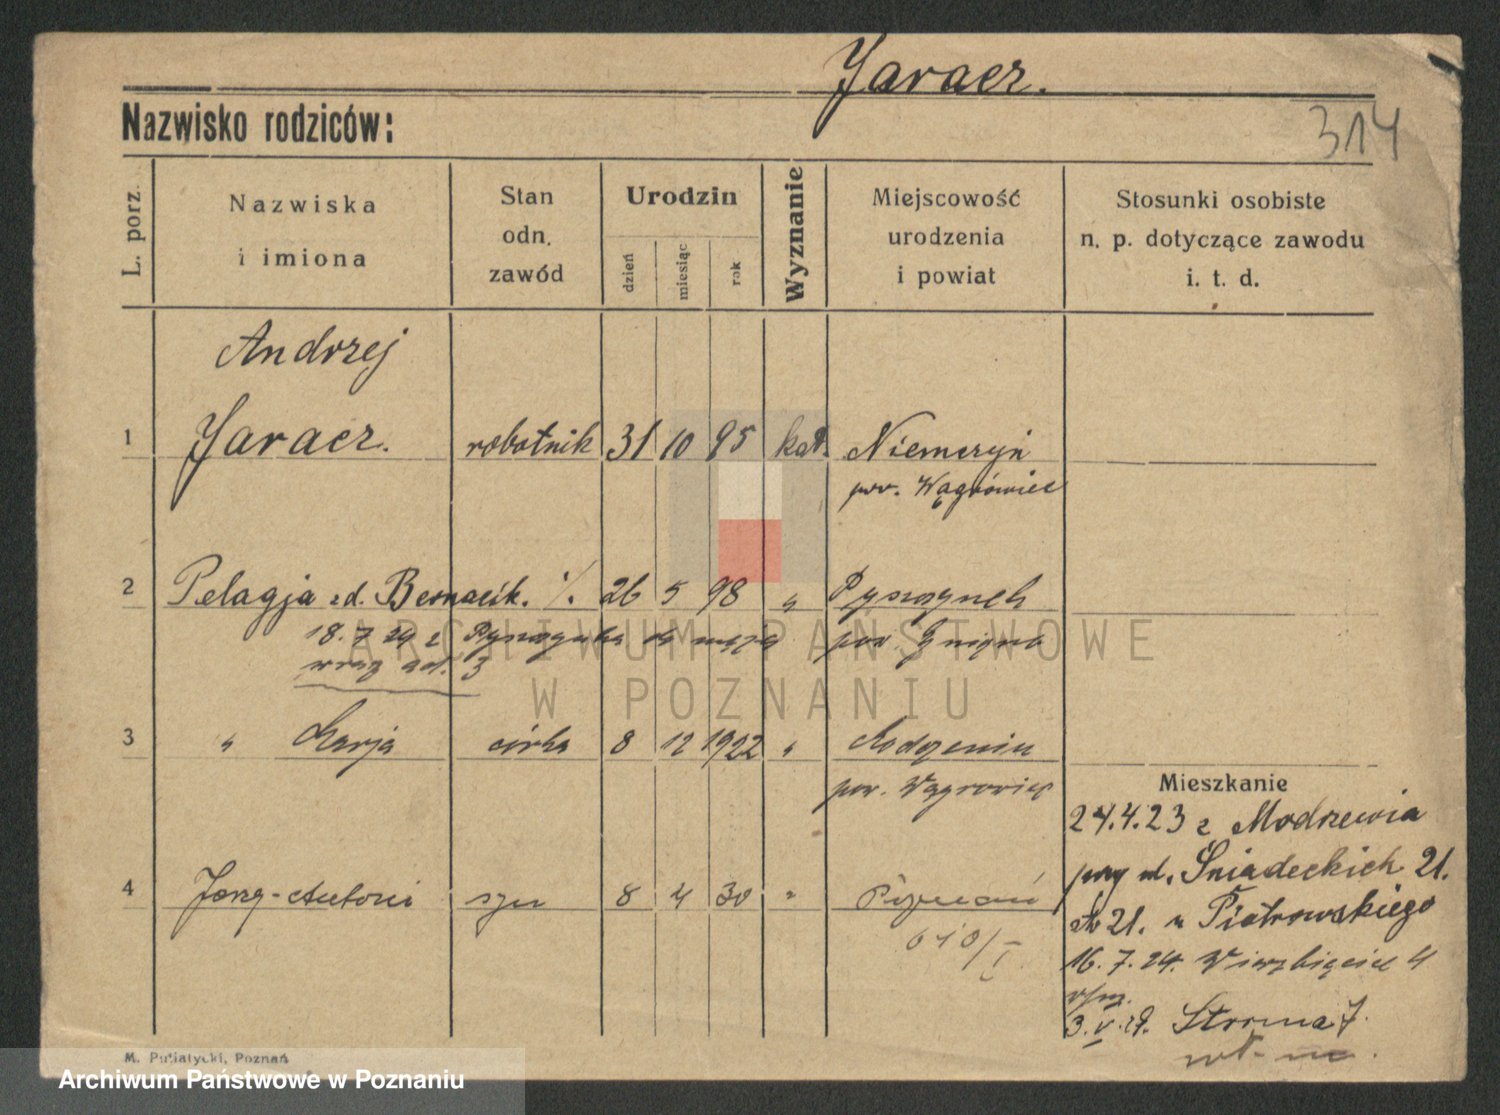 Jaracz.
314
Nazwisko rodziców:
L. porz.
Nazwiska
i imiona
Stan
odn.
zawód
Urodzin
dzień
miesiąc
rok
Wyznanie
Miejscowość
urodzenia
i powiat
Stosunki osobiste
n. p. dotyczące zawodu
i. t. d.
Andrzej
1 Jaracz. robotnik 31 10 95 kat. Niemczyn
pow. Wągrowiec
2 Pelagja zd. Bernacik. ·/. 26 5 98 " Pyszczynek
18.7.24 z Pyszczynka do męża pow. Gniezno
wraz ad. 3
3 " Marja córka 8 12 1922 "
pow. Wągrowiec
Mieszkanie
24.4.23 z Modrzewia
przy ul. Śniadeckich 21.
m 21. u Piotrowskiego
4 Jerzy-Antoni syn 8 4 30 " Poznań
610/I
16.7.24. Wierzbięcice 4
3.V.29. Stroma 7.
M. Putiatycki, Poznań
ARCHIWUM PAŃSTWOWE
W POZNANIU
Archiwum Państwowe w Poznaniu